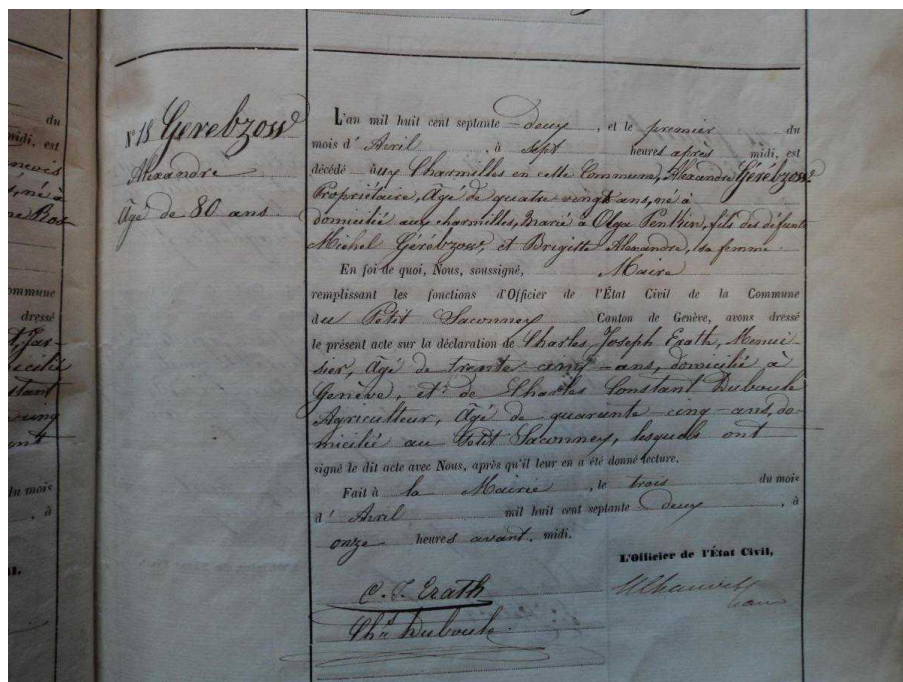 du
midi, est
né à
N° 18 Gerebzow
Alexandre
Âgé de 80 ans.
L'an mil huit cent septante deux, et le premier du
mois d'Avril, à sept heures après midi, est
décédé aux Charmilles en cette Commune, Alexandre Gérébzow
Propriétaire, Âgé de quatre vingt ans, né à
domicilié aux charmilles, marié à Olga Penkin, fils des défunts
Michel Gérébzow, et Brigitte Alexandre, sa femme
En foi de quoi, Nous, soussigné, Maire
remplissant les fonctions d'Officier de l'État Civil de la Commune
du Petit Saconnex Canton de Genève, avons dressé
le présent acte sur la déclaration de Charles Joseph Erath, Menui-
sier, Âgé de trente cinq ans, domicilié à
Genève, et de Charles Constant Duboule
Agriculteur, Âgé de quarante-cinq ans, do-
micilié au Petit Saconnex, lesquels ont
signé le dit acte avec Nous, après qu'il leur en a été donné lecture.
Fait à la Mairie, le trois du mois
d'Avril mil huit cent septante deux, à
onze heures avant midi.
L'Officier de l'État Civil,
C. J. Erath
Chs Duboule
commune
dressé
du mois
, à